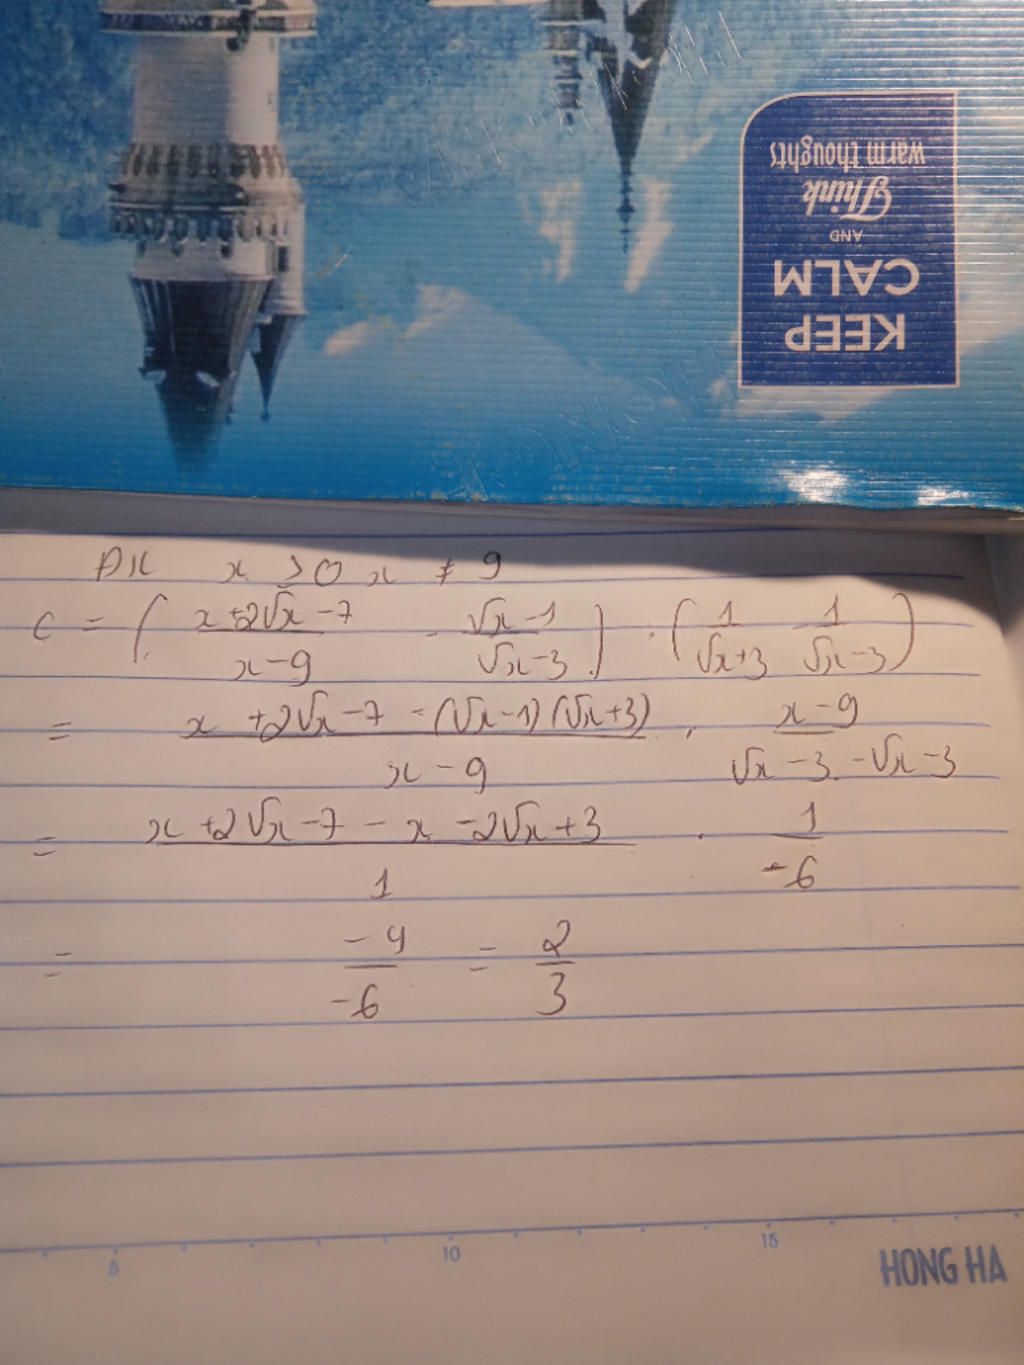 KEEP
CALM
AND
Think
warm thoughts
ĐK x ≥ 0 x ≠ 9
C = ( (x+2√x-7)/(x-9) - (√x-1)/(√x-3) ) : ( 1/(√x+3) - 1/(√x-3) )
= (x+2√x-7-(√x-1)(√x+3))/(x-9) . (x-9)/(√x-3-√x-3)
= (x+2√x-7-x-2√x+3)/1 . 1/(-6)
= (-4)/(-6) = 2/3
5 10 15
HONG HA